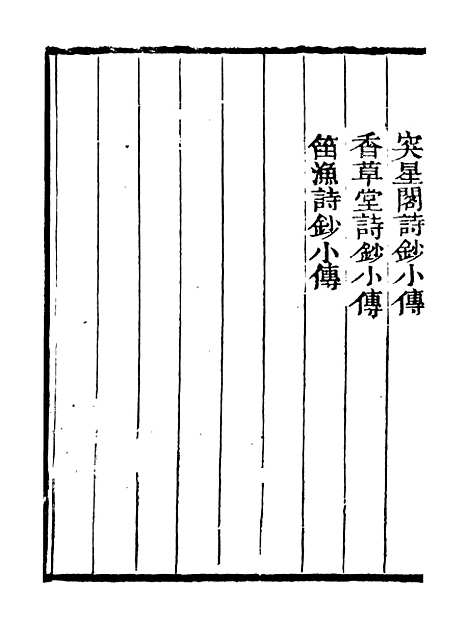 突星閣詩鈔小傳
香草堂詩鈔小傳
笛漁詩鈔小傳